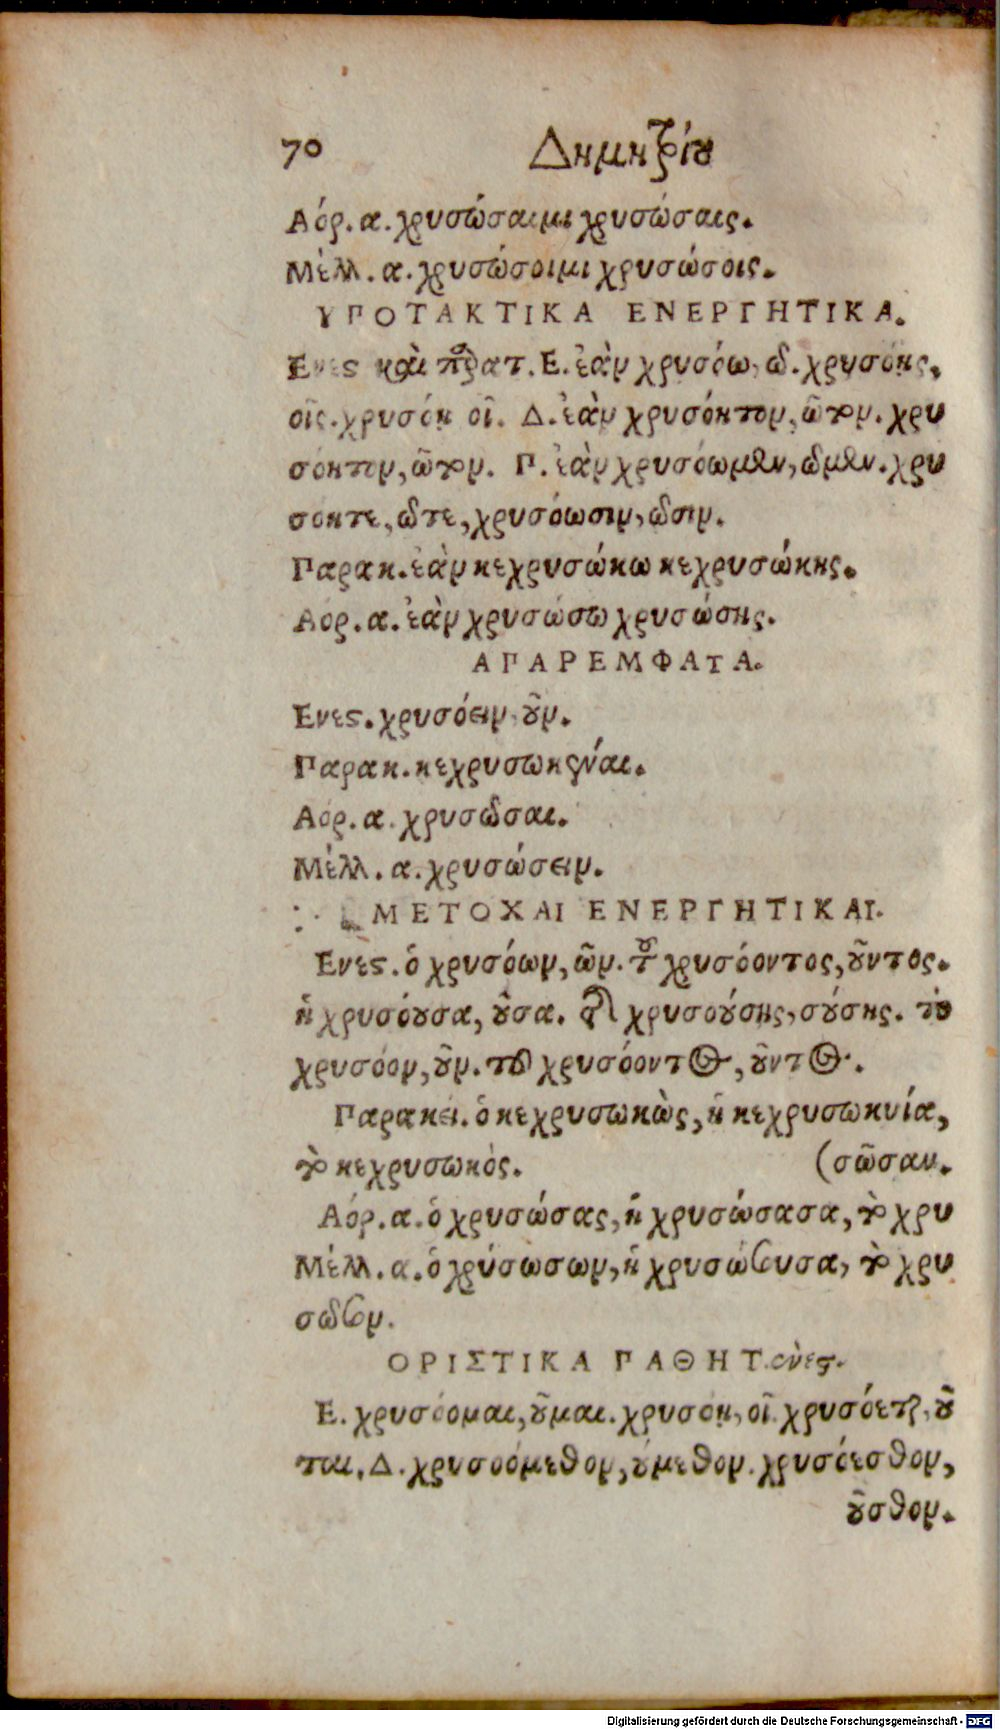 70 Δημητρίου
Αόρ. α. χρυσώσαιμι χρυσώσαις.
Μέλλ. α. χρυσώσοιμι χρυσώσοις.
ΥΠΟΤΑΚΤΙΚΑ ΕΝΕΡΓΗΤΙΚΑ.
Ενες καὶ πρατ. Ε. ἐὰν χρυσόω, ῶ. χρυσόῃς,
οῖς. χρυσόῃ οῖ. Δ. ἐὰν χρυσόητον, ῶτον. χρυ
σόητον, ῶτον. Π. ἐὰν χρυσόωμεν, ῶμεν. χρυ
σόητε, ῶτε, χρυσόωσιν, ῶσιν.
Παρακ. ἐὰν κεχρυσώκω κεχρυσώκῃς.
Αόρ. α. ἐὰν χρυσώσω χρυσώσῃς.
ΑΠΑΡΕΜΦΑΤΑ.
Ενες. χρυσόειν, οῦν.
Παρακ. κεχρυσωκέναι.
Αόρ. α. χρυσῶσαι.
Μέλλ. α. χρυσώσειν.
ΜΕΤΟΧΑΙ ΕΝΕΡΓΗΤΙΚΑΙ.
Ενες. ὁ χρυσόων, ῶν. τοῦ χρυσόοντος, οῦντος.
ἡ χρυσόουσα, οῦσα. τῆς χρυσούσης, σούσης. τὸ
χρυσόον, οῦν. τοῦ χρυσόοντος, οῦντος.
Παρακεί. ὁ κεχρυσωκὼς, ἡ κεχρυσωκυία,
τὸ κεχρυσωκὸς. (σῶσαν.
Αόρ. α. ὁ χρυσώσας, ἡ χρυσώσασα, τὸ χρυ
Μέλλ. α. ὁ χρύσωσων, ἡ χρυσώσουσα, τὸ χρυ
σῶσον.
ΟΡΙΣΤΙΚΑ ΠΑΘΗΤ. ἐνες.
Ε. χρυσόομαι, οῦμαι. χρυσόῃ, οῖ. χρυσόεται, οῦ
ται, Δ. χρυσοόμεθον, ούμεθον. χρυσόεσθον,
οῦσθον.
Digitalisierung gefördert durch die Deutsche Forschungsgemeinschaft - DFG